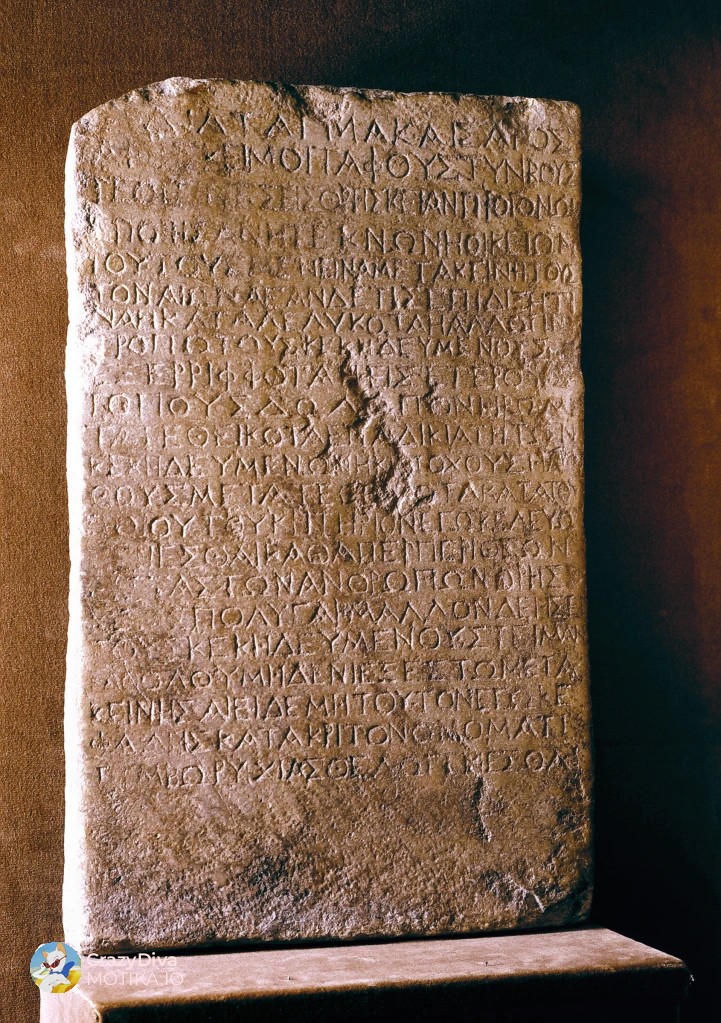 ΔΙΑΤΑΓΜΑ ΚΑΙΣΑΡΟΣ
ΜΟΙ ΤΑΦΟΥΣ ΤΥΝΒΟΥΣ
ΘΡΗΣΚΕΙΑΝ ΠΡΟΓΟΝΩΝ
ΕΠΟΙΗΣΑΝ Η ΤΕΚΝΩΝ Η ΟΙΚΕΙΩΝ
ΤΟΥΤΟΥΣ ΜΕΝΕΙΝ ΑΜΕΤΑΚΕΙΝΗΤΟΥΣ
ΤΟΝ ΑΙΩΝΑ ΕΑΝ ΔΕ ΤΙΣ ΕΠΙΔΙΞΗ ΤΙ
ΝΑ Η ΚΑΤΑΛΕΛΥΚΟΤΑ Η ΑΛΛΩ ΤΙΝΙ
ΤΡΟΠΩ ΤΟΥΣ ΚΕΚΗΔΕΥΜΕΝΟΥΣ
ΕΞΕΡΡΙΦΦΟΤΑ Η ΕΙΣ ΕΤΕΡΟΥΣ
ΤΟΠΟΥΣ ΔΩΛΩ ΠΟΝΗΡΩ ΜΕ
ΤΑΤΕΘΕΙΚΟΤΑ ΕΠ ΑΔΙΚΙΑ ΤΗ ΤΩΝ
ΚΕΚΗΔΕΥΜΕΝΩΝ Η ΚΑΤΟΧΟΥΣ Η ΛΙ
ΘΟΥΣ ΜΕΤΑΤΕΘΕΙΚΟΤΑ ΚΑΤΑ ΤΟΥ
ΤΟΙΟΥΤΟΥ ΚΡΙΤΗΡΙΟΝ ΕΓΩ ΚΕΛΕΥΩ
ΓΕΝΕΣΘΑΙ ΚΑΘΑΠΕΡ ΠΕΡΙ ΘΕΩΝ
ΤΑΣ ΤΩΝ ΑΝΘΡΩΠΩΝ ΘΡΗΣ
ΠΟΛΥ ΓΑΡ ΜΑΛΛΟΝ ΔΕΗΣΕΙ
ΤΟΥΣ ΚΕΚΗΔΕΥΜΕΝΟΥΣ ΤΕΙΜΑΝ
ΚΑΘΟΛΟΥ ΜΗΔΕΝΙ ΕΞΕΣΤΩ ΜΕΤΑ
ΚΕΙΝΗΣΑΙ ΕΙ ΔΕ ΜΗ ΤΟΥΤΟΝ ΕΓΩ ΚΕ
ΦΑΛΗΣ ΚΑΤΑΚΡΙΤΟΝ ΟΝΟΜΑΤΙ
ΤΥΜΒΩΡΥΧΙΑΣ ΘΕΛΩ ΓΕΝΕΣΘΑΙ
CrazyDiva
MOTIKA.IO